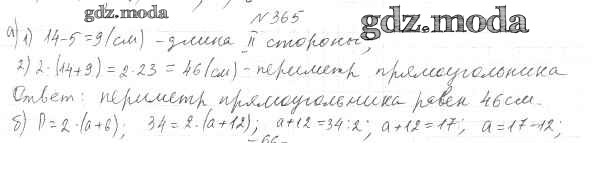 gdz.moda
N 365
gdz.moda
а) 1) 14-5=9(см) - длина II стороны,
2) 2·(14+9)=2·23=46(см) - периметр прямоугольника
Ответ: периметр прямоугольника равен 46см.
б) P=2·(a+b); 34=2·(a+12); a+12=34:2; a+12=17; a=17-12;